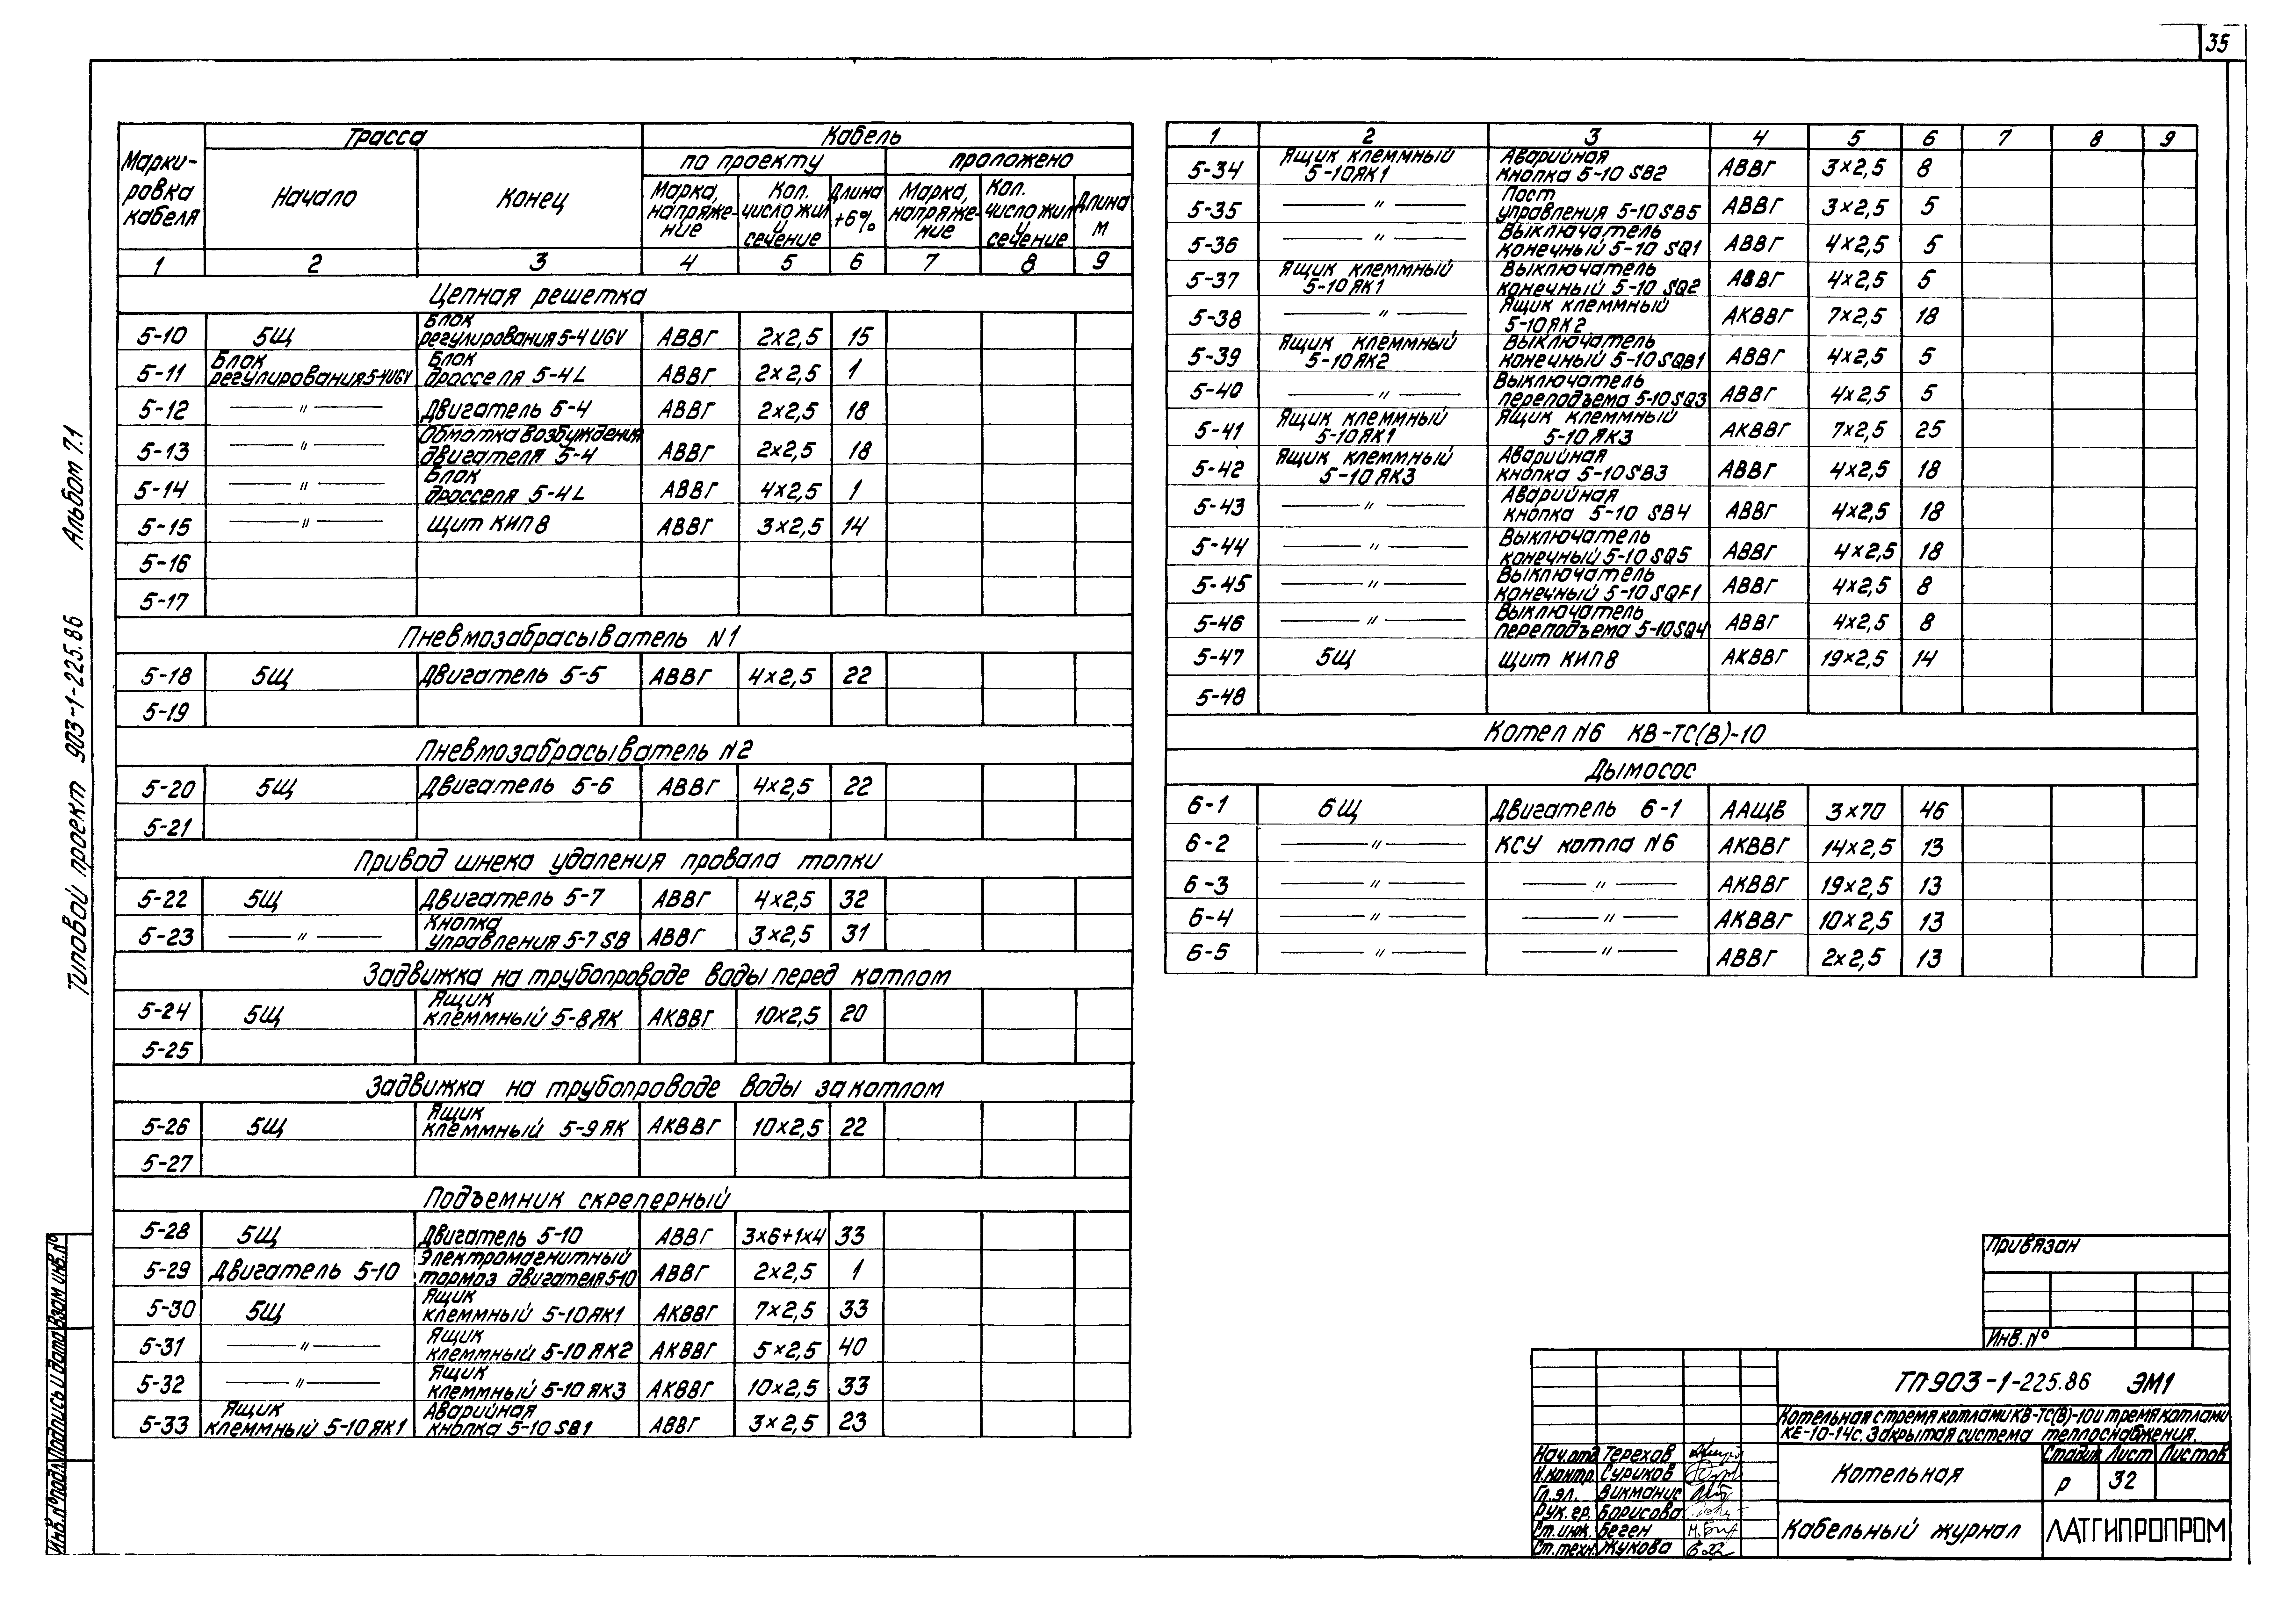 35
Типовой проект 903-1-225.86 Альбом 7.1
Марки-
ровка
кабеля
Трасса
Кабель
Начало
Конец
по проекту
проложено
Марка, напряже-ние
Кол. число жил и сечение
Длина +6%
Марка, напряже-ние
Кол. число жил и сечение
Длина м
1 2 3 4 5 6 7 8 9
Цепная решетка
5-10 5Щ Блок регулирования 5-4 UGV АВВГ 2×2,5 15
5-11 Блок регулирования 5-4UGV Блок дросселя 5-4L АВВГ 2×2,5 1
5-12 —〃— Двигатель 5-4 АВВГ 2×2,5 18
5-13 —〃— Обмотка возбуждения двигателя 5-4 АВВГ 2×2,5 18
5-14 —〃— Блок дросселя 5-4L АВВГ 4×2,5 1
5-15 —〃— Щит КИП 8 АВВГ 3×2,5 14
5-16
5-17
Пневмозабрасыватель N1
5-18 5Щ Двигатель 5-5 АВВГ 4×2,5 22
5-19
Пневмозабрасыватель N2
5-20 5Щ Двигатель 5-6 АВВГ 4×2,5 22
5-21
Привод шнека удаления провала топки
5-22 5Щ Двигатель 5-7 АВВГ 4×2,5 32
5-23 —〃— Кнопка управления 5-7 SB АВВГ 3×2,5 31
Задвижка на трубопроводе воды перед котлом
5-24 5Щ Ящик клеммный 5-8 ЯК АКВВГ 10×2,5 20
5-25
Задвижка на трубопроводе воды за котлом
5-26 5Щ Ящик клеммный 5-9 ЯК АКВВГ 10×2,5 22
5-27
Подъемник скреперный
5-28 5Щ Двигатель 5-10 АВВГ 3×6+1×4 33
5-29 Двигатель 5-10 Электромагнитный тормоз двигателя 5-10 АВВГ 2×2,5 1
5-30 5Щ Ящик клеммный 5-10ЯК1 АКВВГ 7×2,5 33
5-31 —〃— Ящик клеммный 5-10 ЯК2 АКВВГ 5×2,5 40
5-32 —〃— Ящик клеммный 5-10 ЯК3 АКВВГ 10×2,5 33
5-33 Ящик клеммный 5-10 ЯК1 Аварийная кнопка 5-10 SB1 АВВГ 3×2,5 23
1 2 3 4 5 6 7 8 9
5-34 Ящик клеммный 5-10ЯК1 Аварийная кнопка 5-10 SB2 АВВГ 3×2,5 8
5-35 —〃— Пост управления 5-10SB5 АВВГ 3×2,5 5
5-36 —〃— Выключатель конечный 5-10 SQ1 АВВГ 4×2,5 5
5-37 Ящик клеммный 5-10 ЯК1 Выключатель конечный 5-10 SQ2 АВВГ 4×2,5 5
5-38 —〃— Ящик клеммный 5-10ЯК2 АКВВГ 7×2,5 18
5-39 Ящик клеммный 5-10ЯК2 Выключатель конечный 5-10SQB1 АВВГ 4×2,5 5
5-40 —〃— Выключатель переподъема 5-10 SQ3 АВВГ 4×2,5 5
5-41 Ящик клеммный 5-10ЯК1 Ящик клеммный 5-10 ЯК3 АКВВГ 7×2,5 25
5-42 Ящик клеммный 5-10 ЯК3 Аварийная кнопка 5-10SB3 АВВГ 4×2,5 18
5-43 —〃— Аварийная кнопка 5-10 SB4 АВВГ 4×2,5 18
5-44 —〃— Выключатель конечный 5-10 SQ5 АВВГ 4×2,5 18
5-45 —〃— Выключатель конечный 5-10 SQF1 АВВГ 4×2,5 8
5-46 —〃— Выключатель переподъема 5-10SQ4 АВВГ 4×2,5 8
5-47 5Щ Щит КИП 8 АКВВГ 19×2,5 14
5-48
Котел N6 КВ-ТС(В)-10
Дымосос
6-1 6Щ Двигатель 6-1 ААЩВ 3×70 46
6-2 —〃— КСУ котла N6 АКВВГ 14×2,5 13
6-3 —〃— —〃— АКВВГ 19×2,5 13
6-4 —〃— —〃— АКВВГ 10×2,5 13
6-5 —〃— —〃— АВВГ 2×2,5 13
Привязан
Инв. №
ТП 903-1-225.86 ЭМ1
Котельная с тремя котлами КВ-ТС(В)-10 и тремя котлами
КЕ-10-14с. Закрытая система теплоснабжения.
Нач.отд Терехов
Н.контр. Суриков
Гл.эл. Викманис
Рук.гр. Борисова
Ст.инж. Беген
Ст.техн. Жукова
Котельная
Стадия Лист Листов
Р 32
Кабельный журнал
ЛАТГИПРОПРОМ
Инв.№подл. Подпись и дата Взам.инв.№